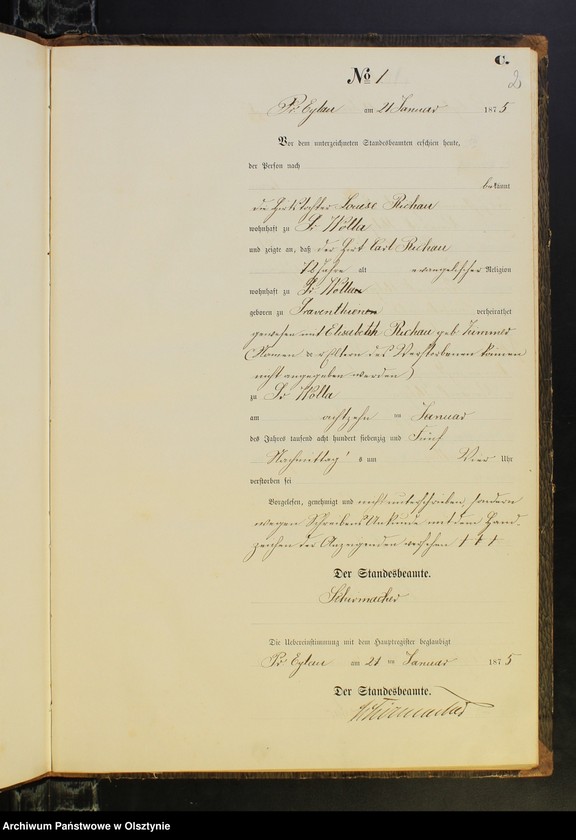 C.
2
No 1
Pr Eylau am 21 Januar 1875
Vor dem unterzeichneten Standesbeamten erschien heute,
der Person nach
bekannt
die Hirtstochter Louise Richau
wohnhaft zu Pr Wolla
und zeigte an, daß der Hirt Carl Richau
Jahre alt evangelischer Religion
wohnhaft zu Pr Wolla
geboren zu verheirathet
gewesen mit Elisabeth Richau geb
(Namen der Eltern des Verstorbenen können
nicht angegeben werden)
zu Pr Wolla
am achtzehn ten Januar
des Jahres tausend acht hundert siebenzig und Fünf
Nachmittag's um Vier Uhr
verstorben sei
Vorgelesen, genehmigt und nicht unterschrieben, sondern
wegen Schreibens Unkunde mit dem Hand-
zeichen der Anzeigenden versehen +++
Der Standesbeamte.
Schirmacher
Die Uebereinstimmung mit dem Hauptregister beglaubigt
Pr Eylau am 21 ten Januar 1875
Der Standesbeamte.
Schirmacher
Archiwum Państwowe w Olsztynie